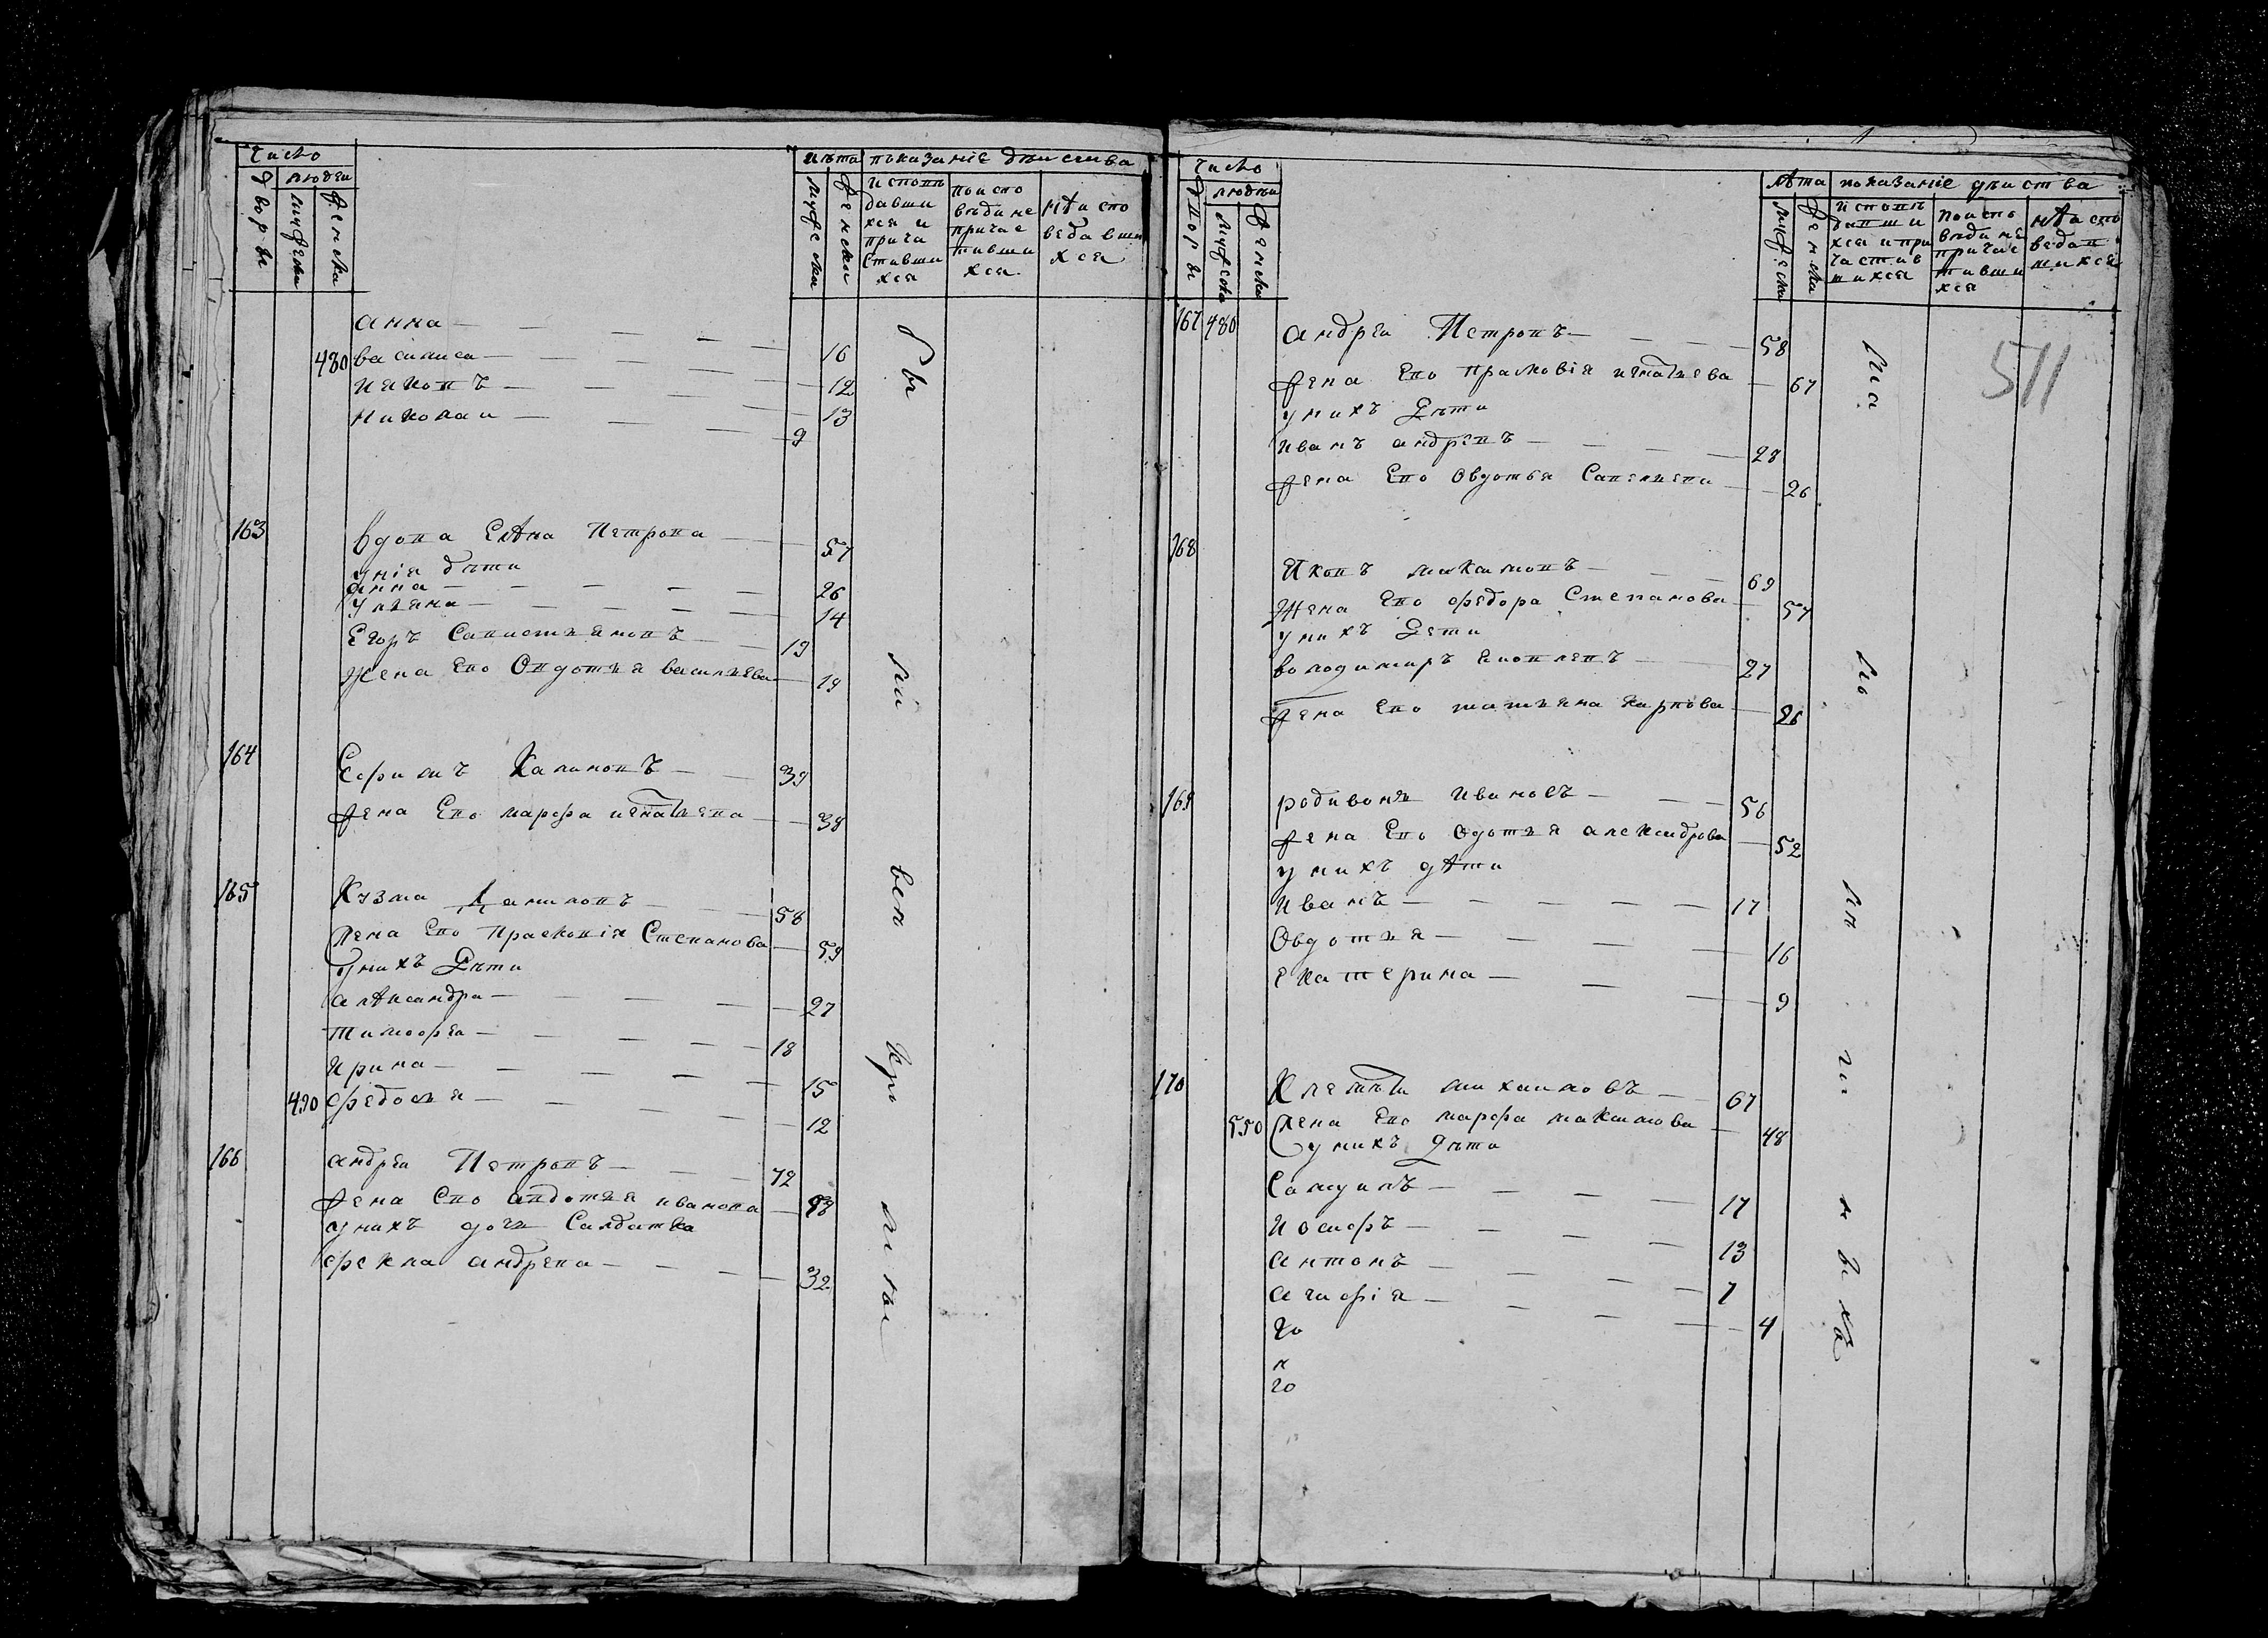 число
лѣта показание действа
дворы
людеи
мужеска
женска
мужески
женски
исповедавши
хся и
прича
ставши
хся
по испо
вѣди не
причас
тивши
хся
не испо
ведавши
хся
анна 16
480 василиса 12
иякопъ 13
николаи 9
163 вдова елена Петрова 57
у нея дѣти
анна 26
уляна 14
Егоръ Савистияновъ 19
жена Ево Овдотия василиева 19
164 Ефимъ Калиновъ 39
жена Ево марфа игнатиева 38
165 Кузма Даниловъ 58
жена Ево Прасковія Степанова 59
у нихъ Дѣти
александра 27
тимофеи 18
ирина 15
490 федосия 12
166 андреи Петровъ 72
жена Ево авдотия иванова
у нихъ дочь Салдатка
фекла андреева 32
число
лѣта показание дѣиства
дворы
людеи
мужеска
женска
мужеска
женска
исповѣ
давши
хся и при
частив
шихся
по испо
вѣди не
причас
тивши
хся
не испо
ведав
шихся
511
167 480 андреи Петровъ 58
жена Ево прасковія игнатиева 67
у нихъ Дѣти
иванъ андреевъ 28
жена Ево Овдотья Савелиева 26
168 Яковъ максимовъ 69
Жена Ево федора Степанова 57
у нихъ Дети
володимиръ яковлевъ 27
жена Ево татияна карпова 26
169 родивонъ Ивановъ 56
жена Ево Овдотия александрова 52
у нихъ дети
иванъ 17
Овдотия 16
екатерина 9
170 Клементи михаиловъ 67
550 жена Ево марфа максимова 48
у нихъ Дѣти
Самуилъ 17
иосифъ 13
антонъ 7
агафія 4
го
к
го